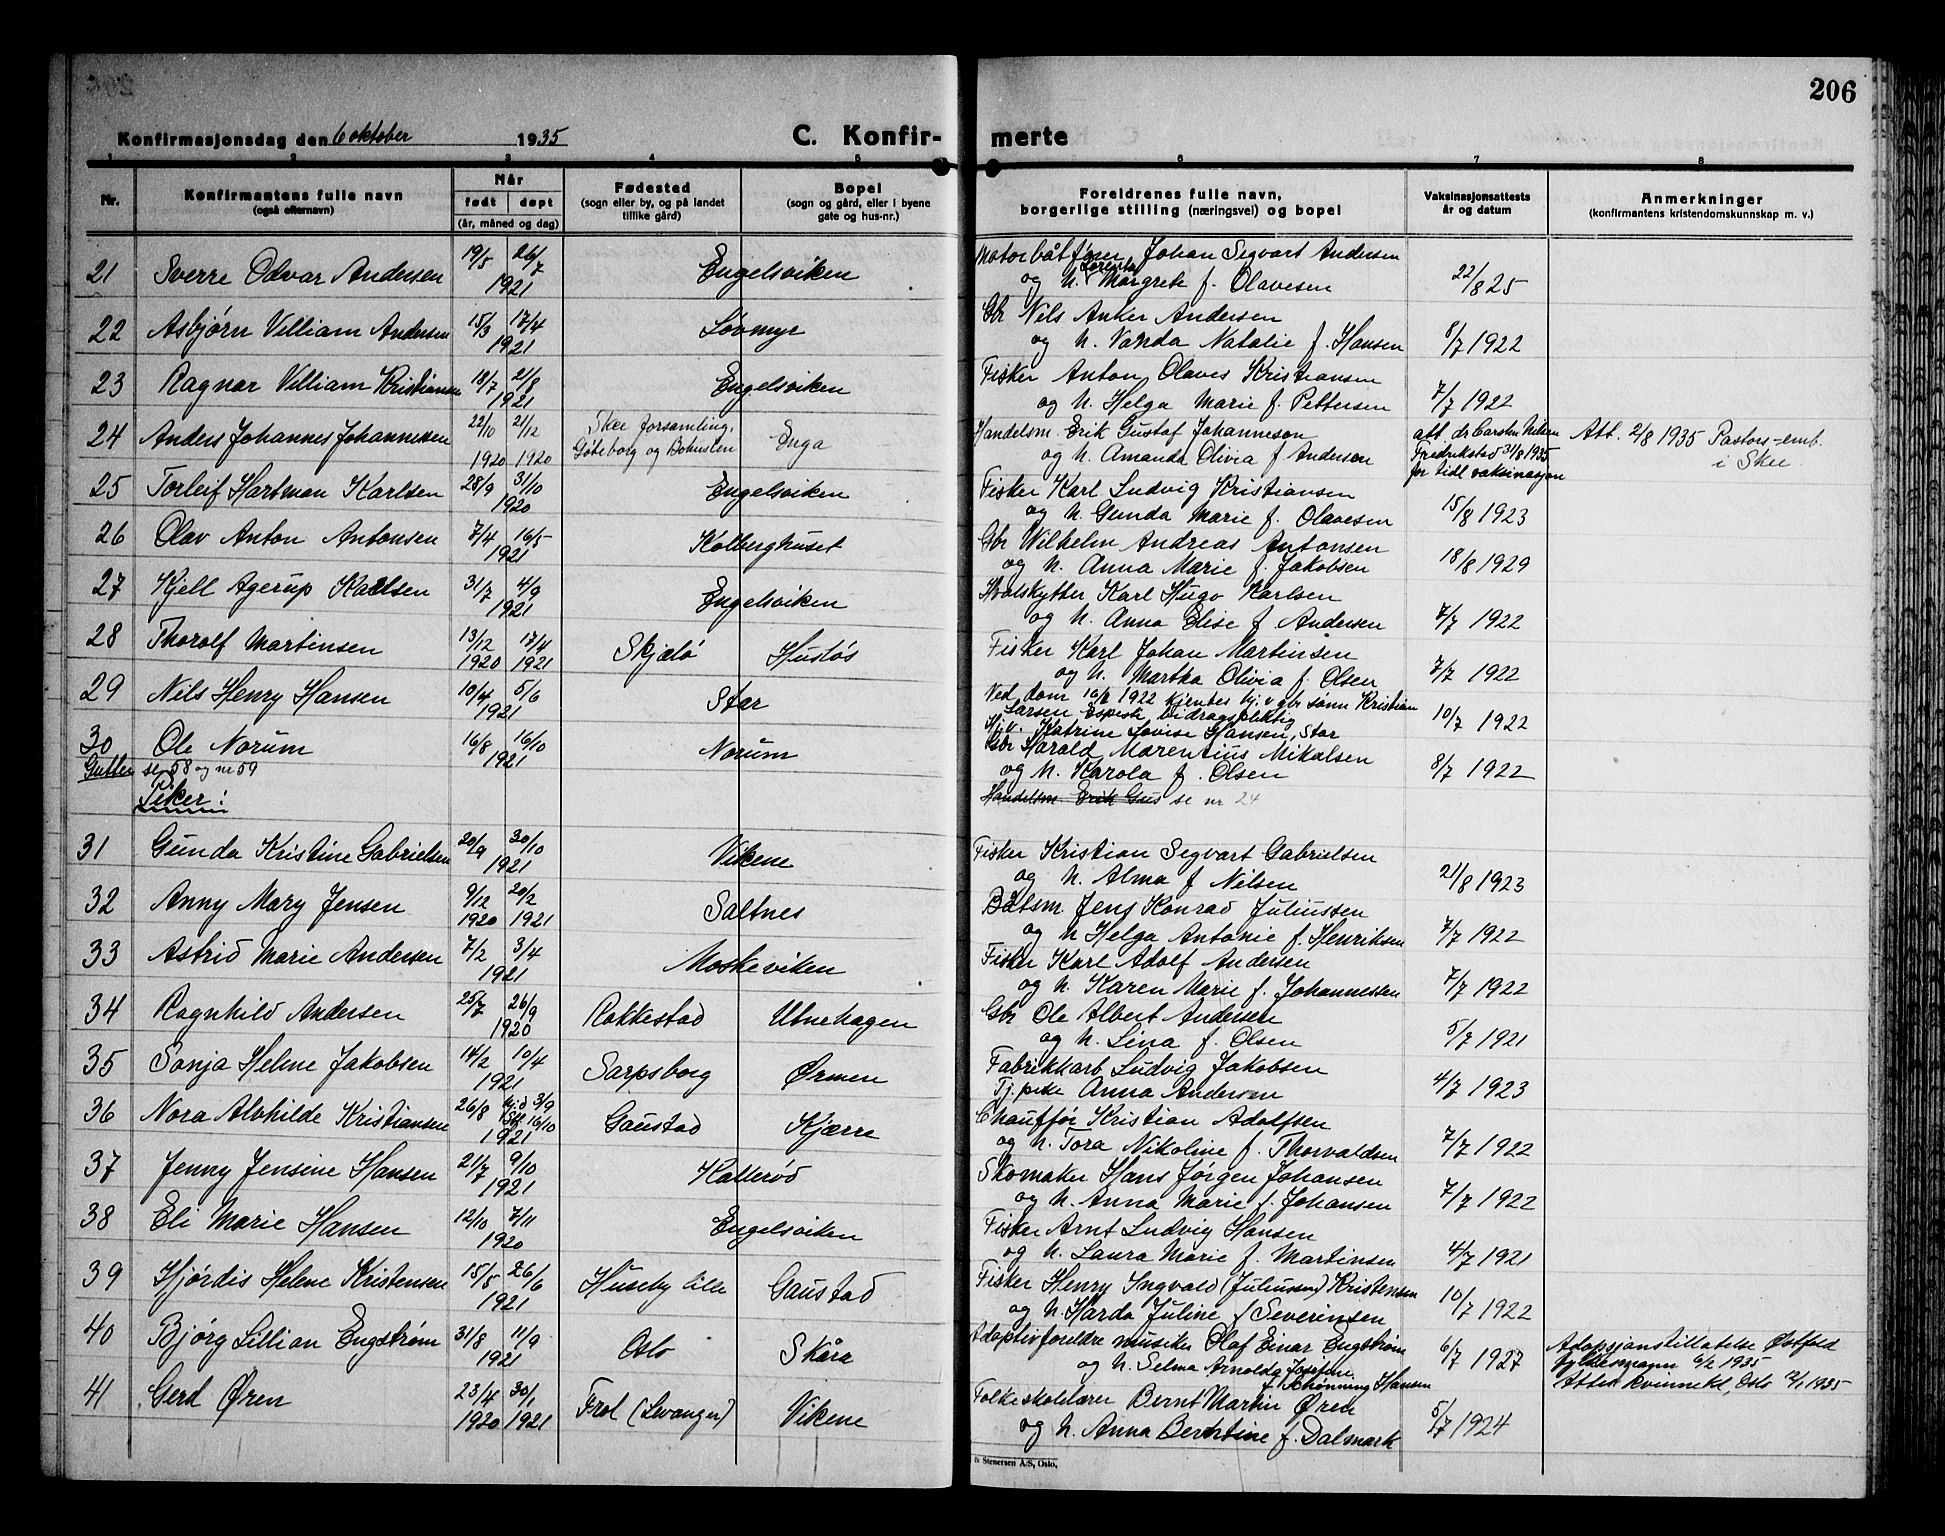 206
Konfirmasjonsdag den 6 oktober 1935
C. Konfir- merte
1 2 3 4 5 6 7 8
Nr.
Konfirmantens fulle navn
(også efternavn)
Når
født døpt
(år, måned og dag)
Fødested
(sogn eller by, og på landet
tillike gård)
Bopel
(sogn og gård, eller i byene
gate og hus-nr.)
Foreldrenes fulle navn,
borgerlige stilling (næringsvei) og bopel
Vaksinasjonsattests
år og datum
Anmerkninger
(konfirmantens kristendomskunnskap m. v.)
21 Sverre Odvar Andersen 19/5 26/7 1921 Engelsviken Motorbåtfører Johan Segvart Andersen
og h. Lorentse Margrete f. Olavesen 22/8 25
22 Asbjørn Villiam Andersen 15/3 17/4 1921 Løvmyr Gbr Nils Anker Andersen
og h. Vanda Natalie f. Hansen 8/7 1922
23 Ragnar Villiam Kristiansen 18/7 21/8 1921 Engelsviken Fisker Anton Olaves Kristiansen
og h. Helga Marie f. Pettersen 7/7 1922
24 Anders Johannes Johannesen 22/10 1920 21/12 1920 Skee forsamling, Göteborg og Bohuslen Enga Handelsm. Erik Gustaf Johanneson
og h. Amanda Olivia f Andersen att. dr Carsten Nilsen Fredrikstad 31/8 1935 for tidl vaksinasjon Att. 2/8 1935 Pastors-emb. i Skee
25 Torleif Hartman Karlsen 28/9 31/10 1920 Engelsviken Fisker Karl Ludvig Kristiansen
og h. Gunda Marie f. Olavesen 15/8 1923
26 Olav Anton Antonsen 7/4 16/5 1921 Kolberghuset Gbr Wilhelm Andreas Antonsen
og h. Anna Marie f. Jakobsen 18/8 1929
27 Kjell Agerup Karlsen 31/7 4/9 1921 Engelsviken Hvalskytter Karl Hugo Karlsen
og h. Anna Elise f Andersen 7/7 1922
28 Thorolf Martinsen 13/12 1920 17/4 1921 Skjælø Husløs Fisker Karl Johan Martinsen
og h. Martha Olivia f. Olsen 7/7 1922
29 Nils Henry Hansen 10/4 5/6 1921 Star Ved dom 10/2 1922 kjentes hj. v. gbr sønn Kristian
Larsen Espesk bidragspliktig
Hj.v. Katrine Lovise Hansen, Star 10/7 1922
30 Ole Norum 16/8 16/10 1921 Norum Gbr Harald Marentius Mikalsen
og h. Karola f. Olsen 8/7 1922
Gutter se 58 og nr 59
Piker: Handelsm. Erik Gus se nr 24
31 Gunda Kristine Gabrielsen 20/9 30/10 1921 Vikene Fisker Kristian Segvart Gabrielsen
og h. Alma f Nilsen 21/8 1923
32 Anny Mary Jensen 9/12 1920 20/2 1921 Saltnes Båtsm. Jens Konrad Juliussen
og h Helga Antonie f. Henriksen 7/7 1922
33 Astrid Marie Andersen 7/2 3/4 1921 Moskeviken Fisker Karl Adolf Andersen
og h. Karen Marie f. Johannessen 7/7 1922
34 Ragnhild Andersen 25/7 26/9 1920 Rakkestad Utnehagen Gbr Ole Albert Andersen
og h. Lina f. Olsen 5/7 1921
35 Sonja Helene Jakobsen 14/2 10/4 1921 Sarpsborg Ørmen Fabrikkarb Ludvig Jakobsen
Tj. pike Anna Andersen 4/7 1923
36 Nora Alvhilde Kristiansen 26/8 hjd 3/9 16/10 1921 Gaustad Kjærre Chauffør Kristian Adolfsen
og h. Tora Nikoline f. Thorvaldsen 7/7 1922
37 Jenny Jensine Hansen 21/7 9/10 1921 Kallerød Skomaker Hans Jørgen Johansen
og h. Anna Marie f. Johansen 7/7 1922
38 Eli Marie Hansen 12/10 7/11 1920 Engelsviken Fisker Arnt Ludvig Hansen
og h. Laura Marie f. Martinsen 4/7 1921
39 Hjørdis Helene Kristensen 15/5 26/6 1921 Huseby lille Gaustad Fisker Henry Ingvald (Juliussen) Kristensen
og h. Harda Juline f Severinsen 10/7 1922
40 Bjørg Lillian Engstrøm 31/8 11/9 1921 Oslo Skåra Adoptivforeldre musiker Olaf Einar Engstrøm
og h. Selma Arnolda Josefine
f Schønning Hansen 6/7 1927 Adopsjonstillatelse Østfold
fylkesmann 6/2 1935
Attest kvinnekl, Oslo 1935
41 Gerd Øren 23/4 1920 30/1 1921 Frol (Levanger) Vikene Folkeskolelærer Bernt Martin Øren
og h. Anna Berntine f. Dalsmark 5/7 1924
& Stenersen A/S, Oslo,